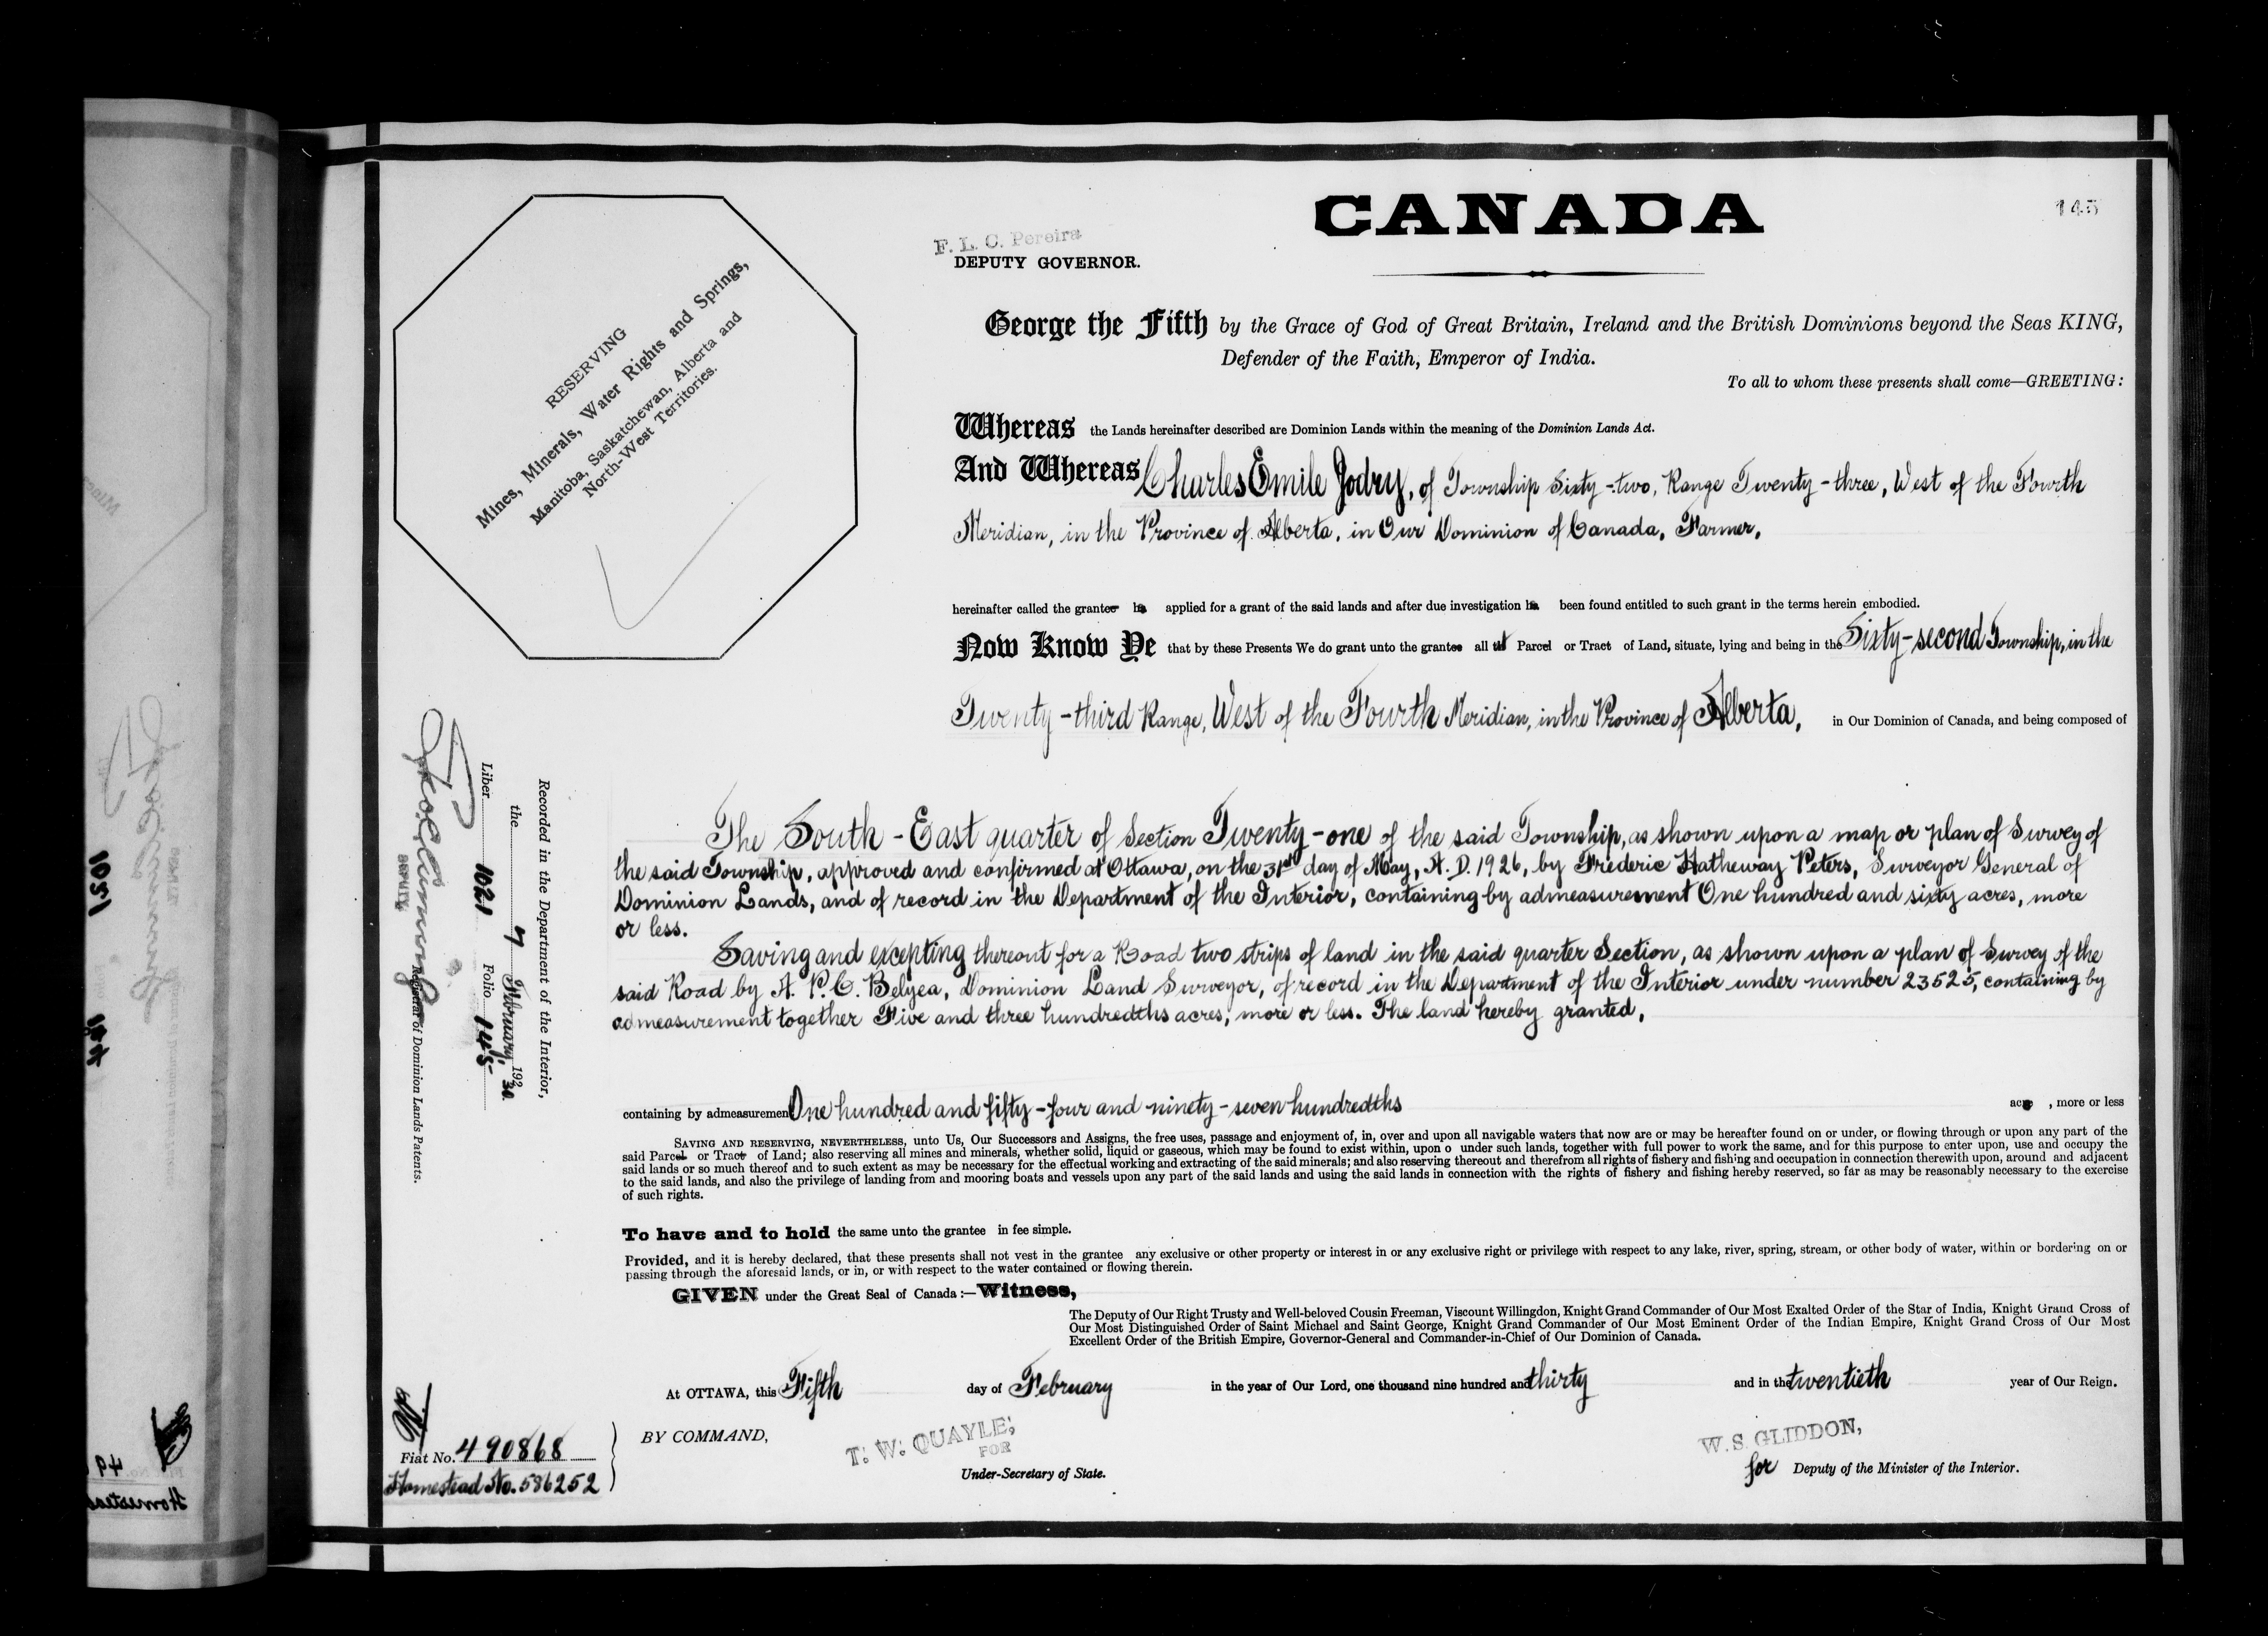 CANADA
145
F. L. C. Pereira
DEPUTY GOVERNOR.
RESERVING
Mines, Minerals, Water Rights and Springs,
Manitoba, Saskatchewan, Alberta and
North-West Territories.
George the Fifth by the Grace of God of Great Britain, Ireland and the British Dominions beyond the Seas KING,
Defender of the Faith, Emperor of India.
To all to whom these presents shall come—GREETING:
Whereas the Lands hereinafter described are Dominion Lands within the meaning of the Dominion Lands Act.
And Whereas Charles Emile Jodry, of Township Sixty-two, Range Twenty-three, West of the Fourth
Meridian, in the Province of Alberta, in Our Dominion of Canada, Farmer,
hereinafter called the grantee has applied for a grant of the said lands and after due investigation has been found entitled to such grant in the terms herein embodied.
Now Know Ye that by these Presents We do grant unto the grantee all that Parcel or Tract of Land, situate, lying and being in the Sixty-second Township, in the
Twenty-third Range, West of the Fourth Meridian, in the Province of Alberta, in Our Dominion of Canada, and being composed of
The South-East quarter of Section Twenty-one of the said Township, as shown upon a map or plan of Survey of
the said Township, approved and confirmed at Ottawa, on the 31st day of May, A. D. 1926, by Frederic Hatheway Peters, Surveyor General of
Dominion Lands, and of record in the Department of the Interior, containing by admeasurement One hundred and sixty acres, more
or less.
Saving and excepting thereout for a Road two strips of land in the said quarter Section, as shown upon a plan of Survey of the
said Road by A. P. C. Belyea, Dominion Land Surveyor, of record in the Department of the Interior under number 23525, containing by
admeasurement together Five and three hundredths acres, more or less. The land hereby granted,
containing by admeasurement One hundred and fifty-four and ninety-seven hundredths acre , more or less
SAVING AND RESERVING, NEVERTHELESS, unto Us, Our Successors and Assigns, the free uses, passage and enjoyment of, in, over and upon all navigable waters that now are or may be hereafter found on or under, or flowing through or upon any part of the
said Parcel or Tract of Land; also reserving all mines and minerals, whether solid, liquid or gaseous, which may be found to exist within, upon o under such lands, together with full power to work the same, and for this purpose to enter upon, use and occupy the
said lands or so much thereof and to such extent as may be necessary for the effectual working and extracting of the said minerals; and also reserving thereout and therefrom all rights of fishery and fishing and occupation in connection therewith upon, around and adjacent
to the said lands, and also the privilege of landing from and mooring boats and vessels upon any part of the said lands and using the said lands in connection with the rights of fishery and fishing hereby reserved, so far as may be reasonably necessary to the exercise
of such rights.
To have and to hold the same unto the grantee in fee simple.
Provided, and it is hereby declared, that these presents shall not vest in the grantee any exclusive or other property or interest in or any exclusive right or privilege with respect to any lake, river, spring, stream, or other body of water, within or bordering on or
passing through the aforesaid lands, or in, or with respect to the water contained or flowing therein.
GIVEN under the Great Seal of Canada:—Witness,
The Deputy of Our Right Trusty and Well-beloved Cousin Freeman, Viscount Willingdon, Knight Grand Commander of Our Most Exalted Order of the Star of India, Knight Grand Cross of
Our Most Distinguished Order of Saint Michael and Saint George, Knight Grand Commander of Our Most Eminent Order of the Indian Empire, Knight Grand Cross of Our Most
Excellent Order of the British Empire, Governor-General and Commander-in-Chief of Our Dominion of Canada.
At OTTAWA, this Fifth day of February in the year of Our Lord, one thousand nine hundred and thirty and in the twentieth year of Our Reign.
BY COMMAND,
T. W. QUAYLE,
FOR
Under-Secretary of State.
W. S. GLIDDON,
for Deputy of the Minister of the Interior.
Recorded in the Department of the Interior,
the 7 February, 1930
Liber 1021 Folio 145
DEPUTY
Registrar of Dominion Lands Patents.
Fiat No. 490868
Homestead No. 586252